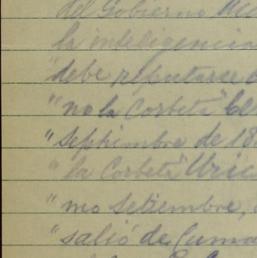 del Gobierno
la inteligencia
"debe reputarse
"no la Corbeta
"septiembre de 18
"la Corbeta
"mo Setiembre,
"salió de Cuma